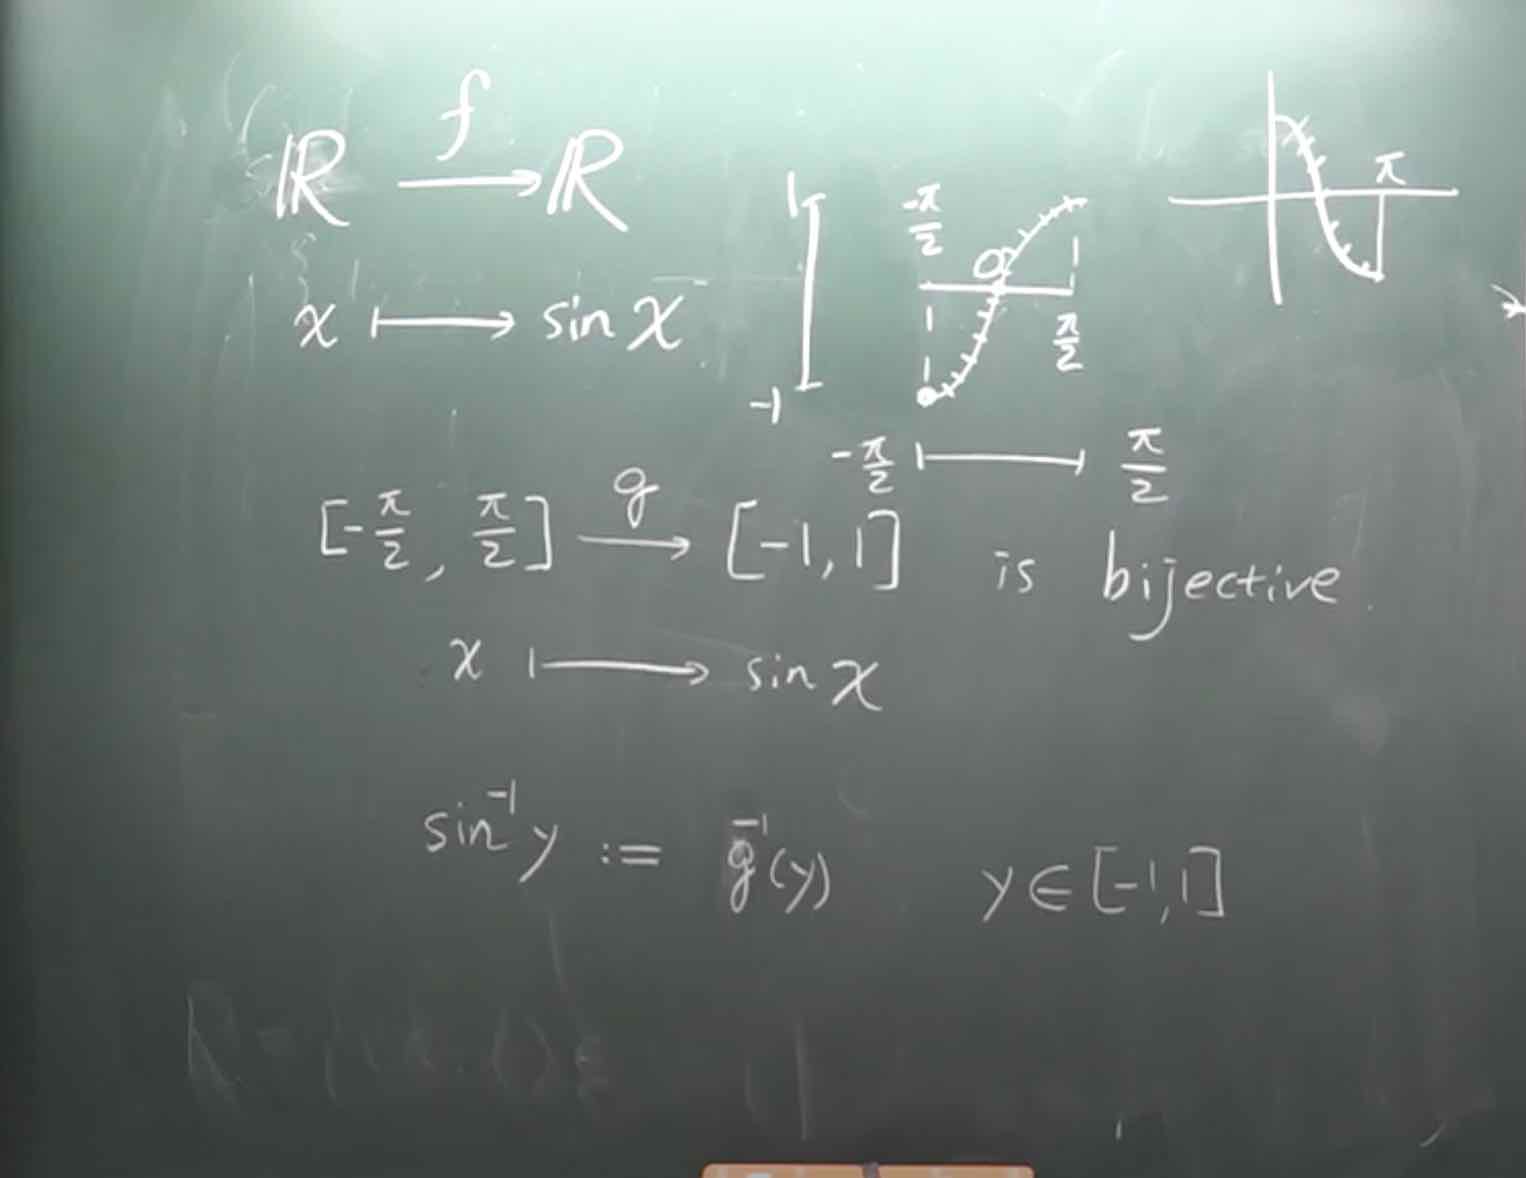 ℝ —f→ ℝ
x ⟼ sin x
1
-1
-π/2
0
π/2
π
-π/2 π/2
[-π/2, π/2] —g→ [-1, 1] is bijective.
x ⟼ sin x
sin⁻¹y := g⁻¹(y) y ∈ [-1, 1]